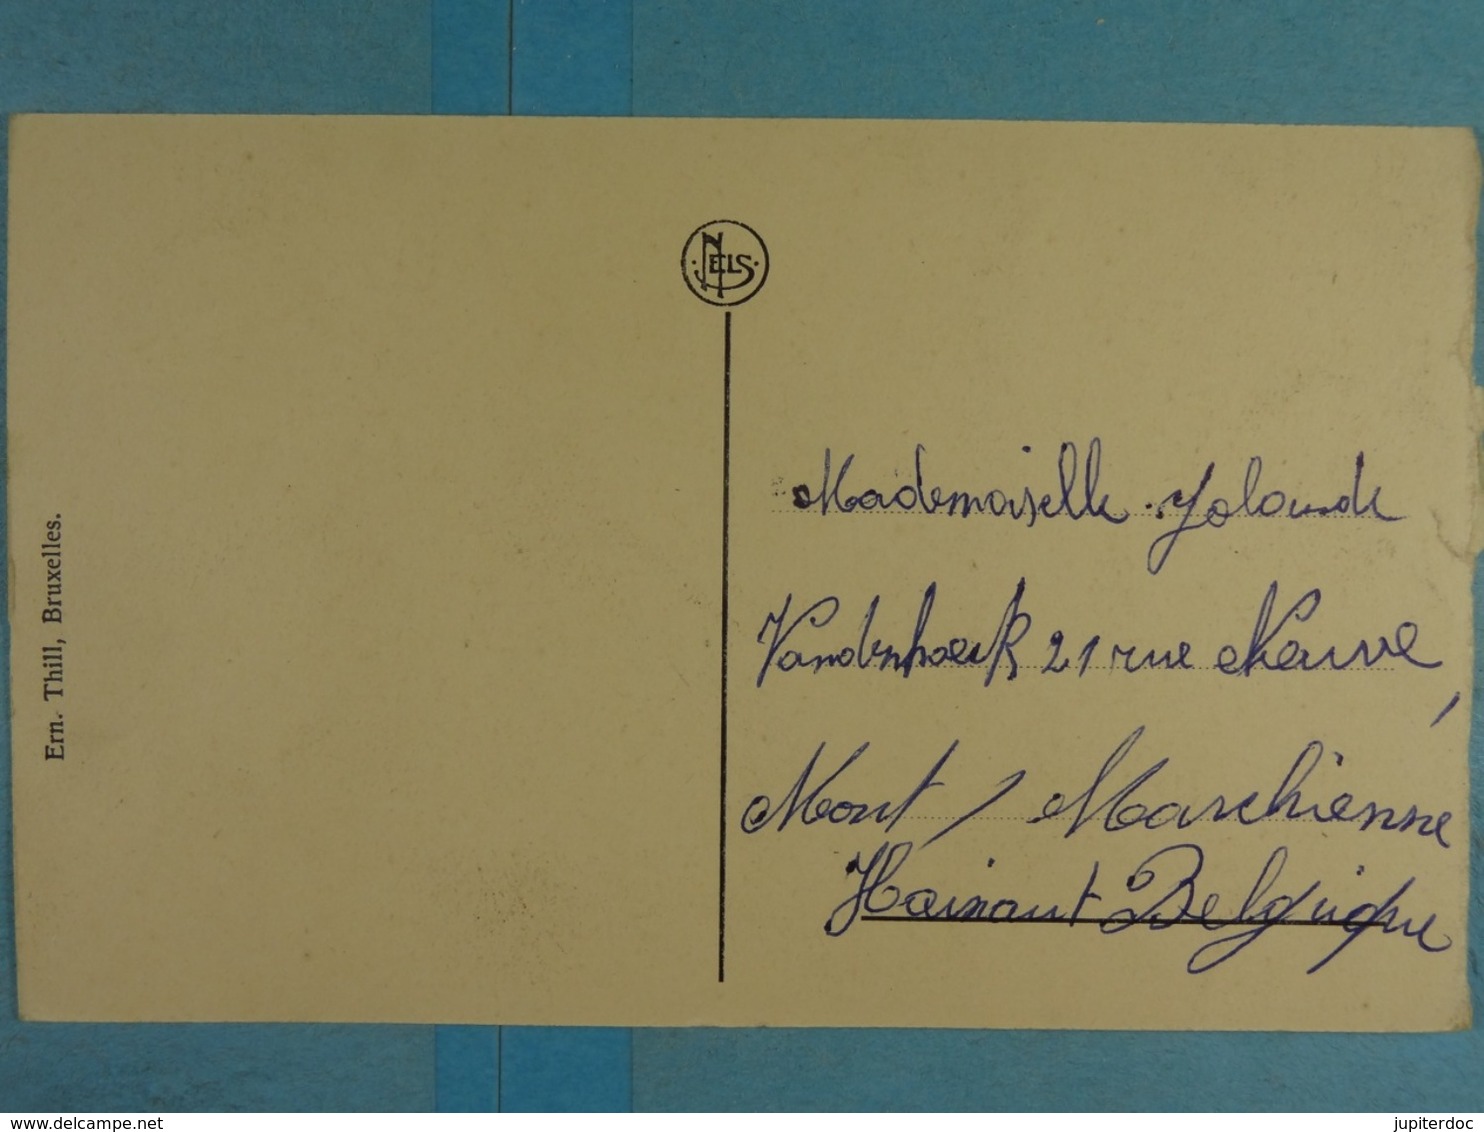 NELS
Ern. Thill, Bruxelles.
Mademoiselle Yolande
Vandenhoeck 21 rue Neuve
Mont / Marchienne
Hainaut Belgique
www.delcampe.net
jupiterdoc